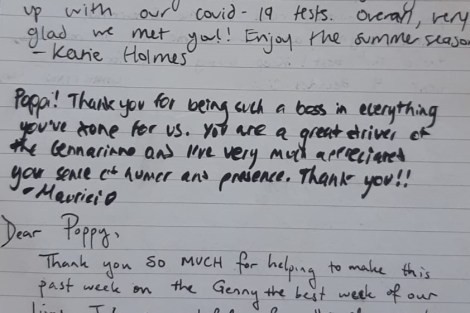 up with our covid-19 tests. Overall, very
glad we met you!! Enjoy the summer season
- Karie Holmes
Poppi! Thank you for being such a boss in everything
you've done for us. You are a great driver of
the Gennarino and I've very much appreciated
your sense of humor and presence. Thank you!!
- Mauricio
Dear Poppy,
Thank you SO MUCH for helping to make this
past week on the Genny the best week of our